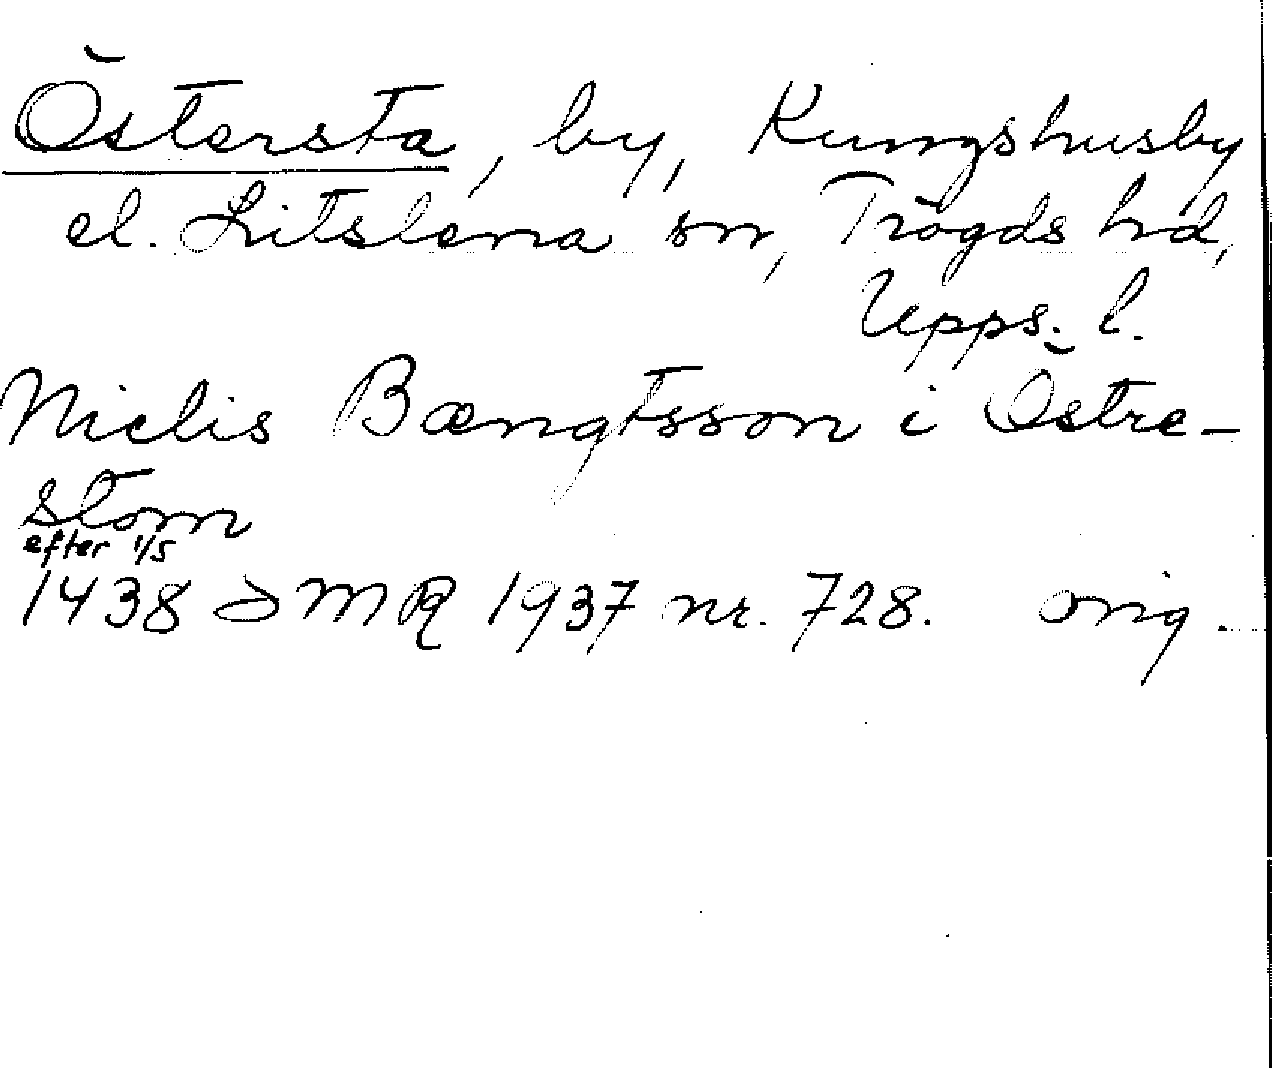 Östersta, by, Kungshusby
el. Litslena sn, Trögds hd,
Upps. l.
Nielis Bængtsson i Östre-
stom
efter 1/5
1438 DMR 1937 nr. 728. orig.